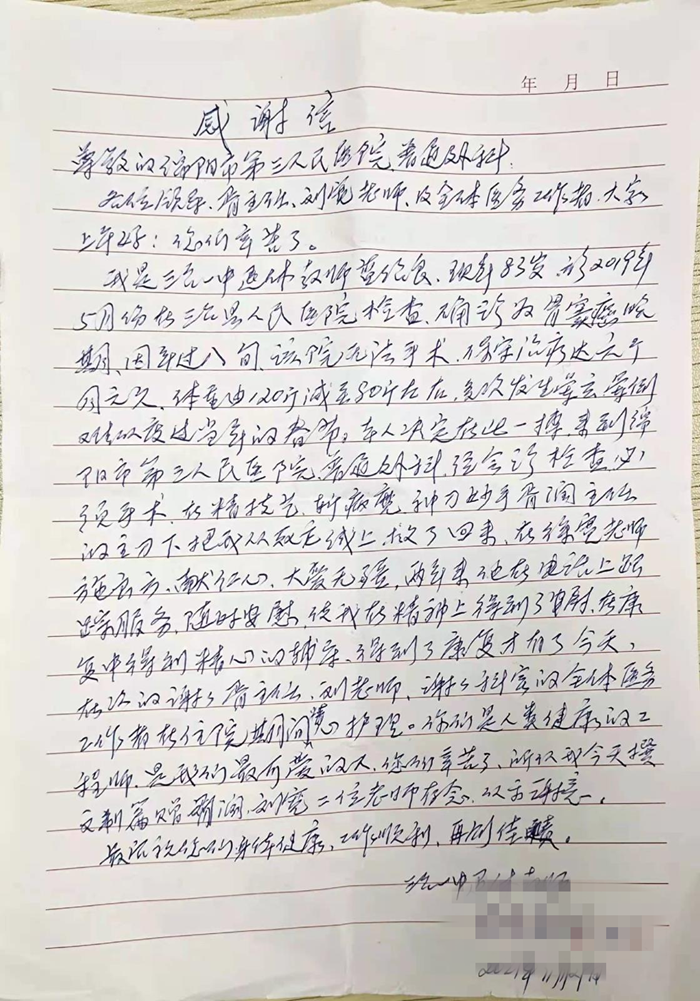 年 月 日
感谢信
尊敬的绵阳市第三人民医院普通外科
各位领导、胥主任、刘宽老师、及全体医务工作者、大家
上午好：你们辛苦了。
我是三台一中退休教师 现年83岁、于2019年
5月份在三台县人民医院检查、确诊为胃窦癌晚
期、因年过八旬、该院无法手术、保守治疗达六个
月无效、体重由120斤减至80斤左右、多次发生晕玄晕倒
难以度过当年的春节。本人决定在此一搏、来到绵
阳市第三人民医院、普通外科、经会诊检查、必
须手术、在精技艺、斩病魔神刀妙手胥润主任
的主刀下把我从死亡线上救了回来、在刘宽老师
施良方、献仁心、大爱无疆、两年来他在电话上跟
踪服务、随时安慰、使我在精神上得到了自慰、在康
复中得到精心的辅导、得到了康复才有了今天、
在次的谢谢胥主任、刘老师、谢谢科室的全体医务
工作者在住院期间 心护理。你们是人类健康的工
程师、是我们最可爱的人、你们辛苦了、所以我今天撰
文制篇赠胥润、刘宽二位老师存念、以示谢意。
最后祝你们身体健康、工作顺利、再创佳绩。
三台一中退休教师
2021年11月